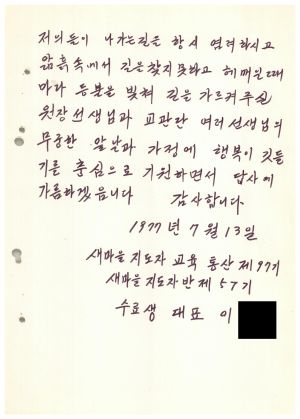 저의들이 나가는길을 항시 염려하시고
암흑속에서 길을찾지못하고 헤매일때
마다 등불을 빛쳐 길을 가르켜주신
원장선생님과 교관단 여러선생님의
무궁한 앞날과 가정에 행복이 깃들
기를 충심으로 기원하면서 답사에
가름하겠읍니다 감사합니다.
1977년 7월 13일
새마을 지도자 교육 통산 제97기
새마을지도자반 제57기
수료생 대표 이